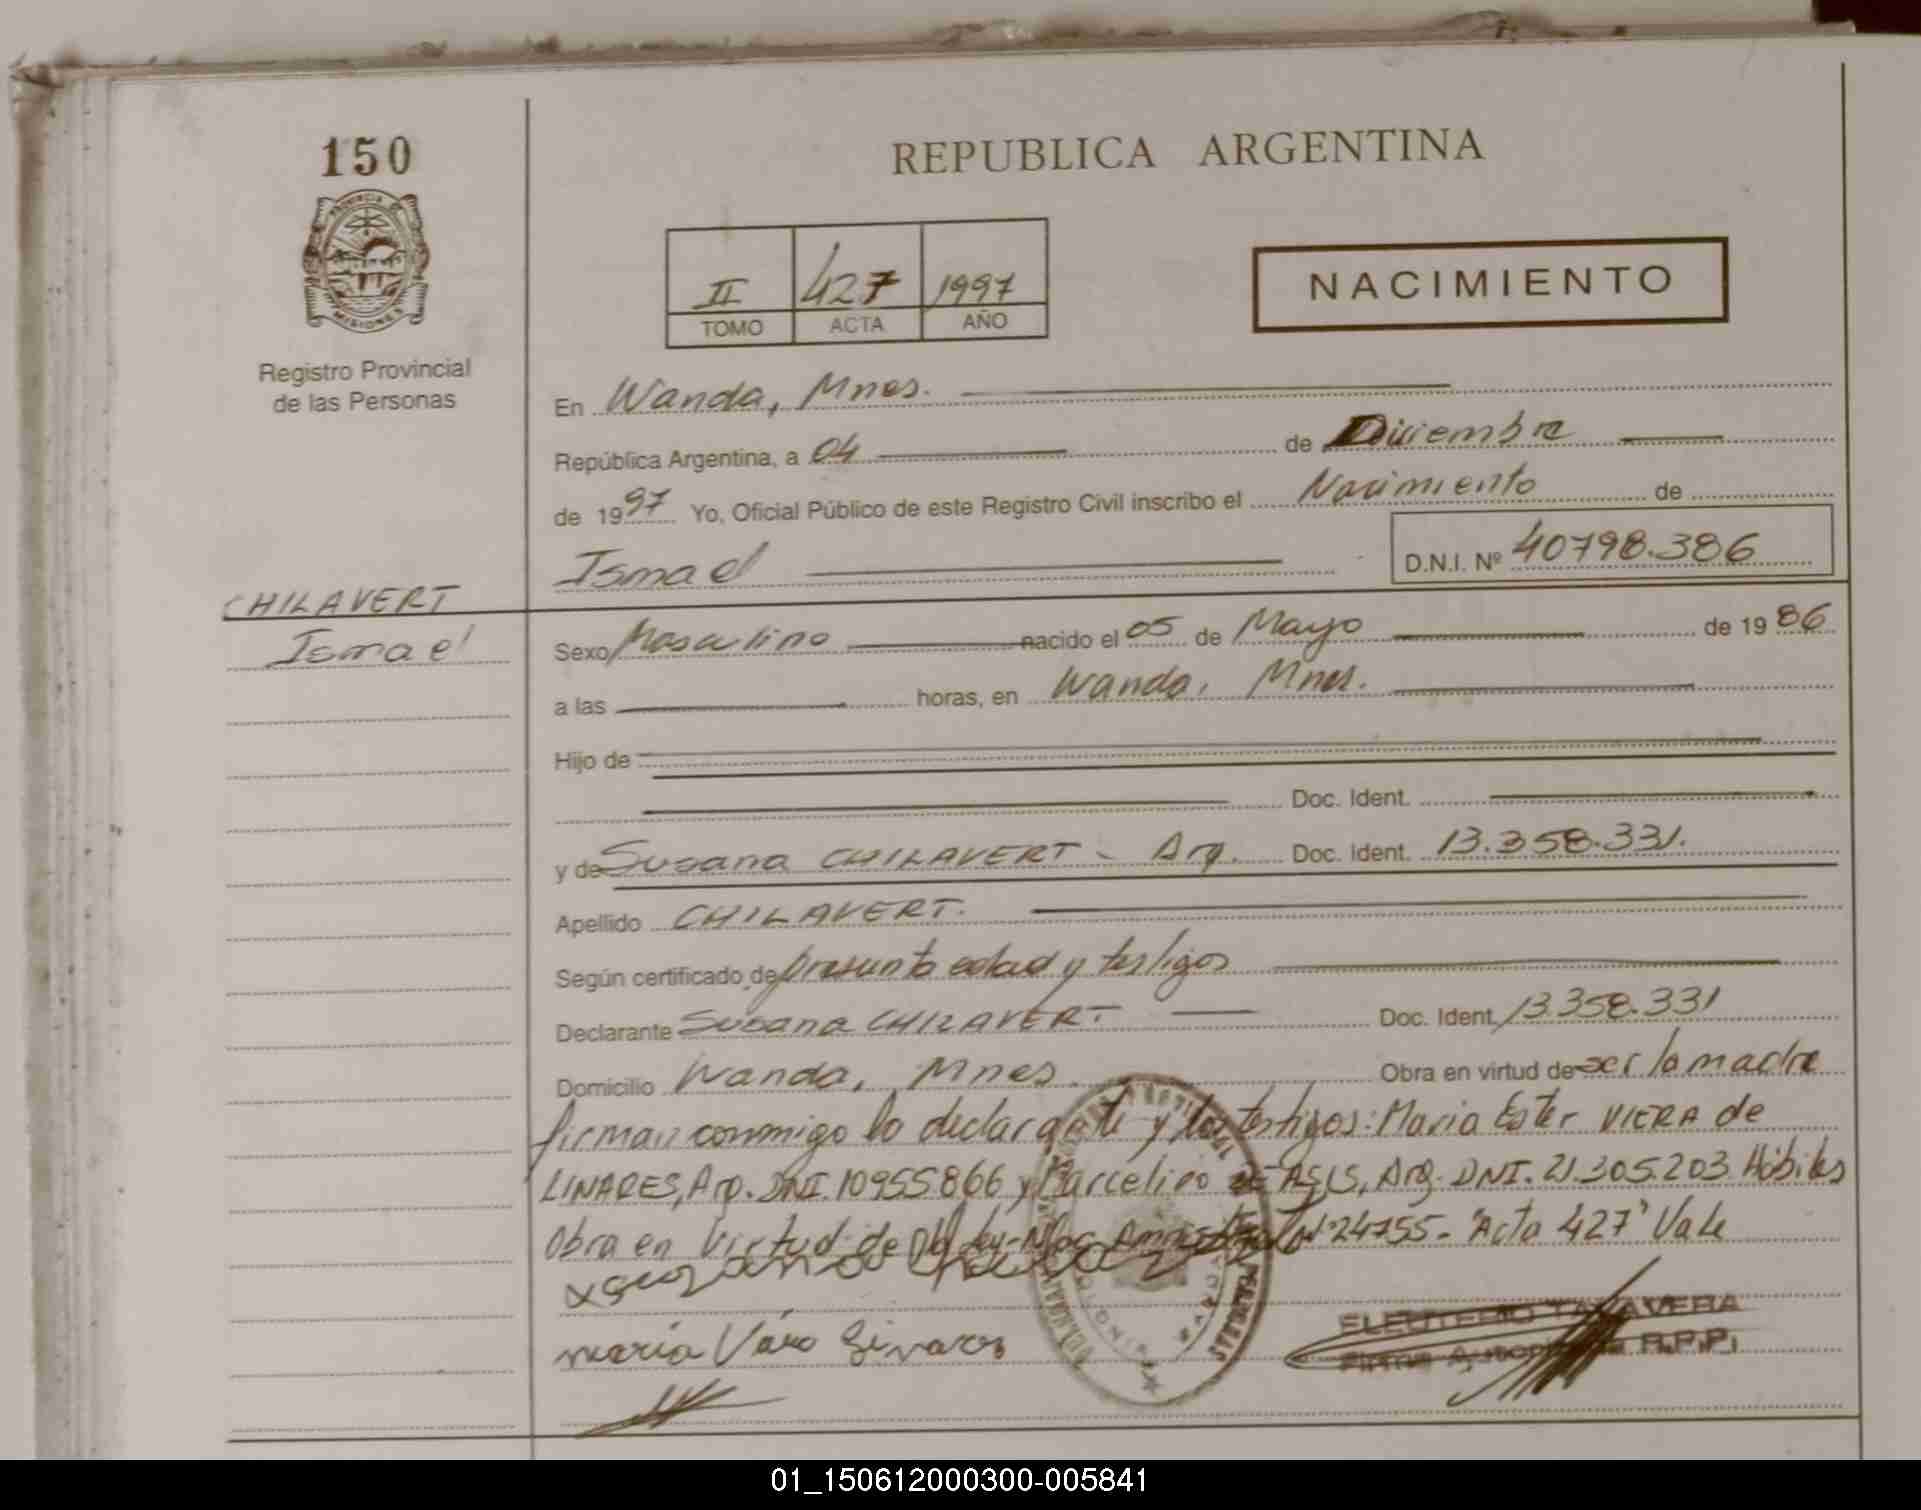 150
REPUBLICA ARGENTINA
PROVINCIA DE
MISIONES
Registro Provincial
de las Personas
II 427 1997
TOMO ACTA AÑO
NACIMIENTO
En Wanda, Mnes.
República Argentina, a 04 de Diciembre
de 1997 Yo, Oficial Público de este Registro Civil inscribo el Nacimiento de
Ismael D.N.I. Nº 40798.386
CHILAVERT
Ismael
Sexo Masculino nacido el 05 de Mayo de 1986
a las horas, en Wanda, Mnes.
Hijo de
Doc. Ident.
y de Susana CHILAVERT - Arg. Doc. Ident. 13.358.331.
Apellido CHILAVERT.
Según certificado de presunta edad y testigos
Declarante Susana CHILAVERT Doc. Ident. 13.358.331
Domicilio Wanda, Mnes. Obra en virtud de ser la madre
firman conmigo la declarante y los testigos: Maria Ester VIERA de
LINARES, Arg. DNI. 10955866 y Marcelino DE ASIS, Arg. DNI. 21.305.203 Hábiles
Obra en Virtud de 24755 - "Acta 427" Vale
maria
ELEUTERIO TALAVERA
Firma R.P.P.
01_150612000300-005841